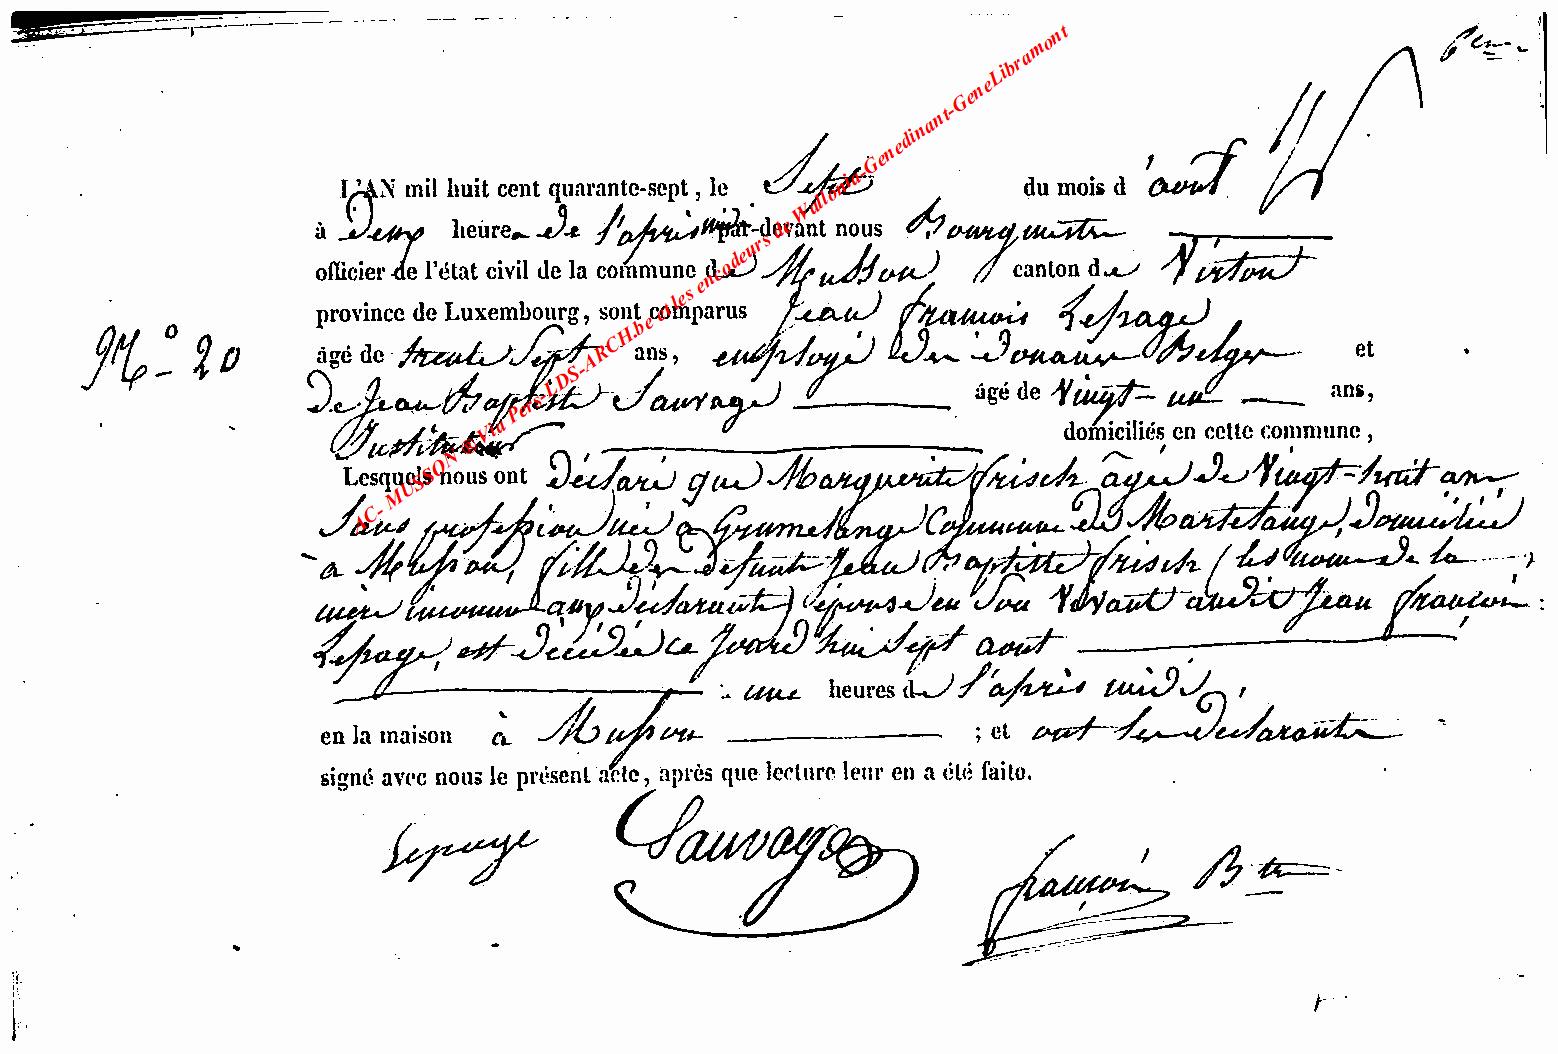 6em
L'AN mil huit cent quarante-sept, le Sept du mois d'août
à deux heures de l'après midi par-devant nous Bourgmestre
officier de l'état civil de la commune de Musson canton de Virton
province de Luxembourg, sont comparus Jean françois Lepage
N.o 20 âgé de trente Sept ans, employé des douanes Belges et
de Jean Baptiste Sauvage âgé de Vingt-un ans,
Instituteur domiciliés en cette commune,
Lesquels nous ont déclaré que Marguerite frisch âgée de Vingt-huit ans
Sans profession née à Grumelange Commune de Martelange, domiciliée
à Musson, fille des défunts Jean Baptiste frisch (les noms de la
mère inconnus aux déclarants) épouse en son Vivant audit Jean françois
Lepage, est décédée ce Jourd'hui Sept août
à une heures de l'après midi,
en la maison à Musson ; et ont les déclarants
signé avec nous le présent acte, après que lecture leur en a été faite.
Lepage Sauvage françois Btre
AC- MUSSON © Via Pers-LDS-ARCH.be et les encodeurs de Wallonia-Genedinant-GeneLibramont